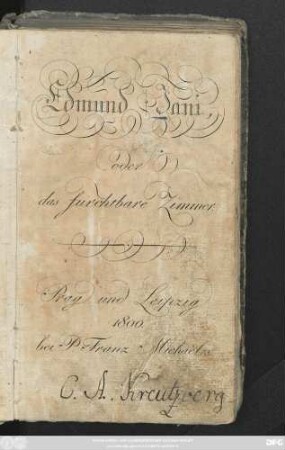 Edmund Jani,
oder
das furchtbare Zimmer.
Prag und Leipzig
1800.
bei P. Franz Michael
C. A. Kreutzberg